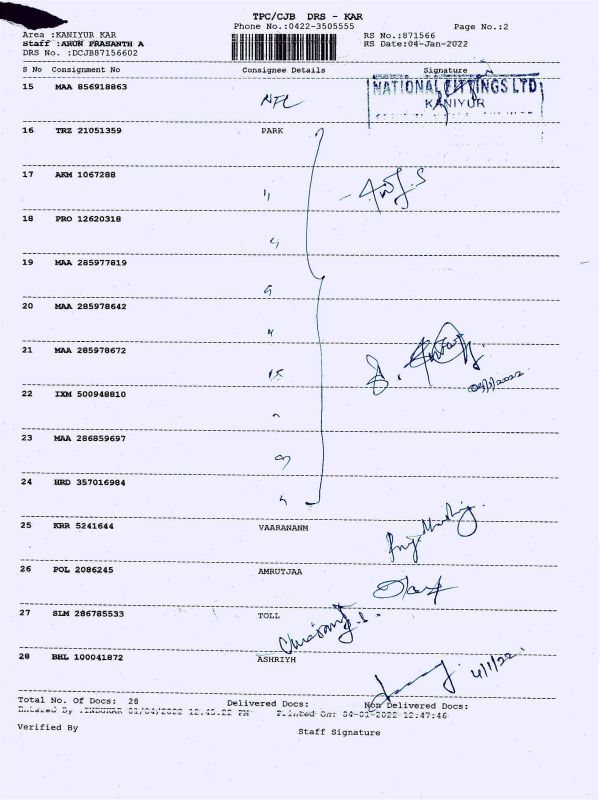 TPC/CJB DRS - KAR
Phone No.:0422-3505555 Page No.:2
Area :KANIYUR KAR
RS No.:871566
Staff :ARUN PRASANTH A
RS Date:04-Jan-2022
DRS No. :DCJB87156602
S No Consignment No Consignee Details Signature
15 MAA 856918863 NFL NATIONAL FITTINGS LTD
KANIYUR
16 TRZ 21051359 PARK
17 AKM 1067288
18 PRO 12620318
19 MAA 285977819
20 MAA 285978642
21 MAA 285978672
22 IXM 500948810
23 MAA 286859697
24 HRD 357016984
25 KRR 5241644 VAARANANM
26 POL 2086245 AMRUTJAA
27 SLM 286785533 TOLL
28 BHL 100041872 ASHRIYH 4/1/22
Total No. Of Docs: 28 Delivered Docs: Non Delivered Docs:
Entered By :INDUKAR 01/04/2022 12.45.22 PM Printed On: 04-01-2022 12:47:46
Verified By Staff Signature